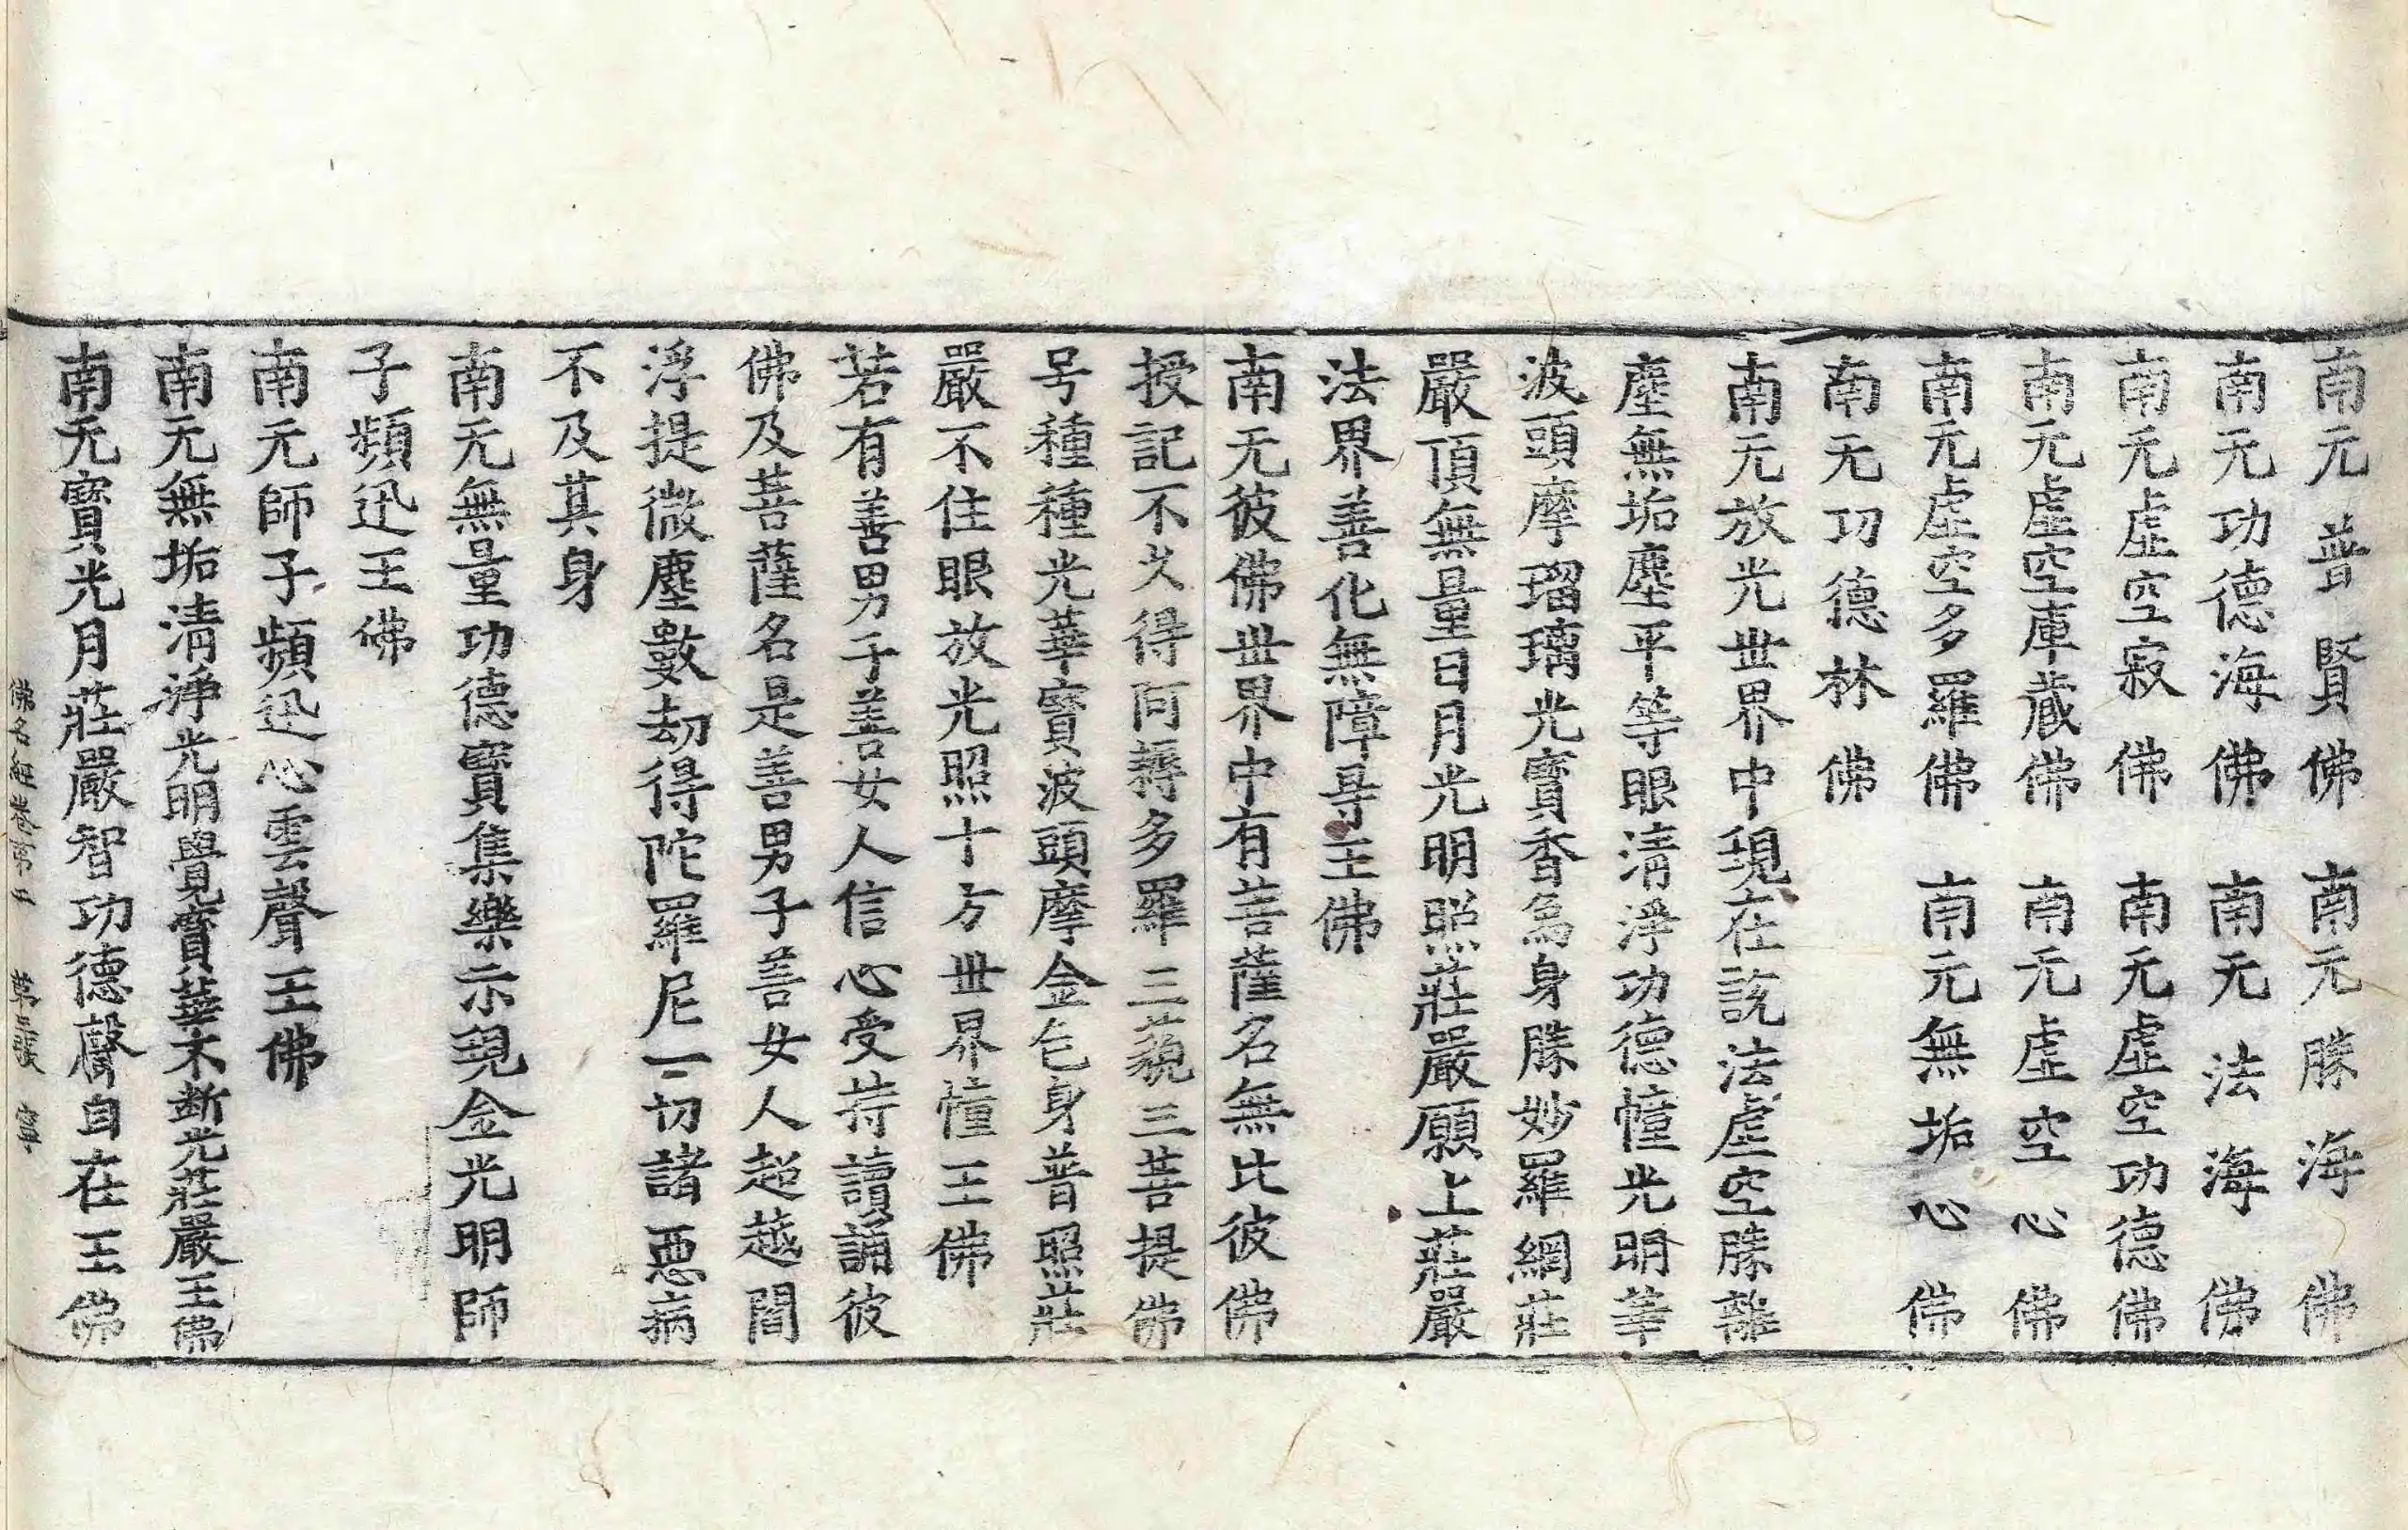 南无普賢佛　南无勝海佛
南无功德海佛　南无法海佛
南无虛空寂佛　南无虛空功德佛
南无虛空庫藏佛　南无虛空心佛
南无虛空多羅佛　南无無垢心佛
南无功德林佛
南无放光世界中現在說法虛空勝離
塵無垢塵平等眼清淨功德幢光明華
波頭摩瑠璃光寶香爲身勝妙羅網莊
嚴頂無量日月光明照莊嚴願上莊嚴
法界善化無障㝵王佛
南无彼佛世界中有菩薩名無比彼佛
授記不久得阿耨多羅三藐三菩提佛
号種種光華寶波頭摩金色身普照莊
嚴不住眼放光照十方世界幢王佛
若有善男子善女人信心受持讀誦彼
佛及菩薩名是善男子善女人超越閻
浮提微塵數劫得陀羅尼一切諸惡病
不及其身
南无無量功德寶集樂示現金光明師
子頻迅王佛
南无師子頻迅心雲聲王佛
南无無垢清淨光明覺寶華不斷光莊嚴王佛
南无寶光月莊嚴智功德聲自在王佛
佛名經卷第　第　張